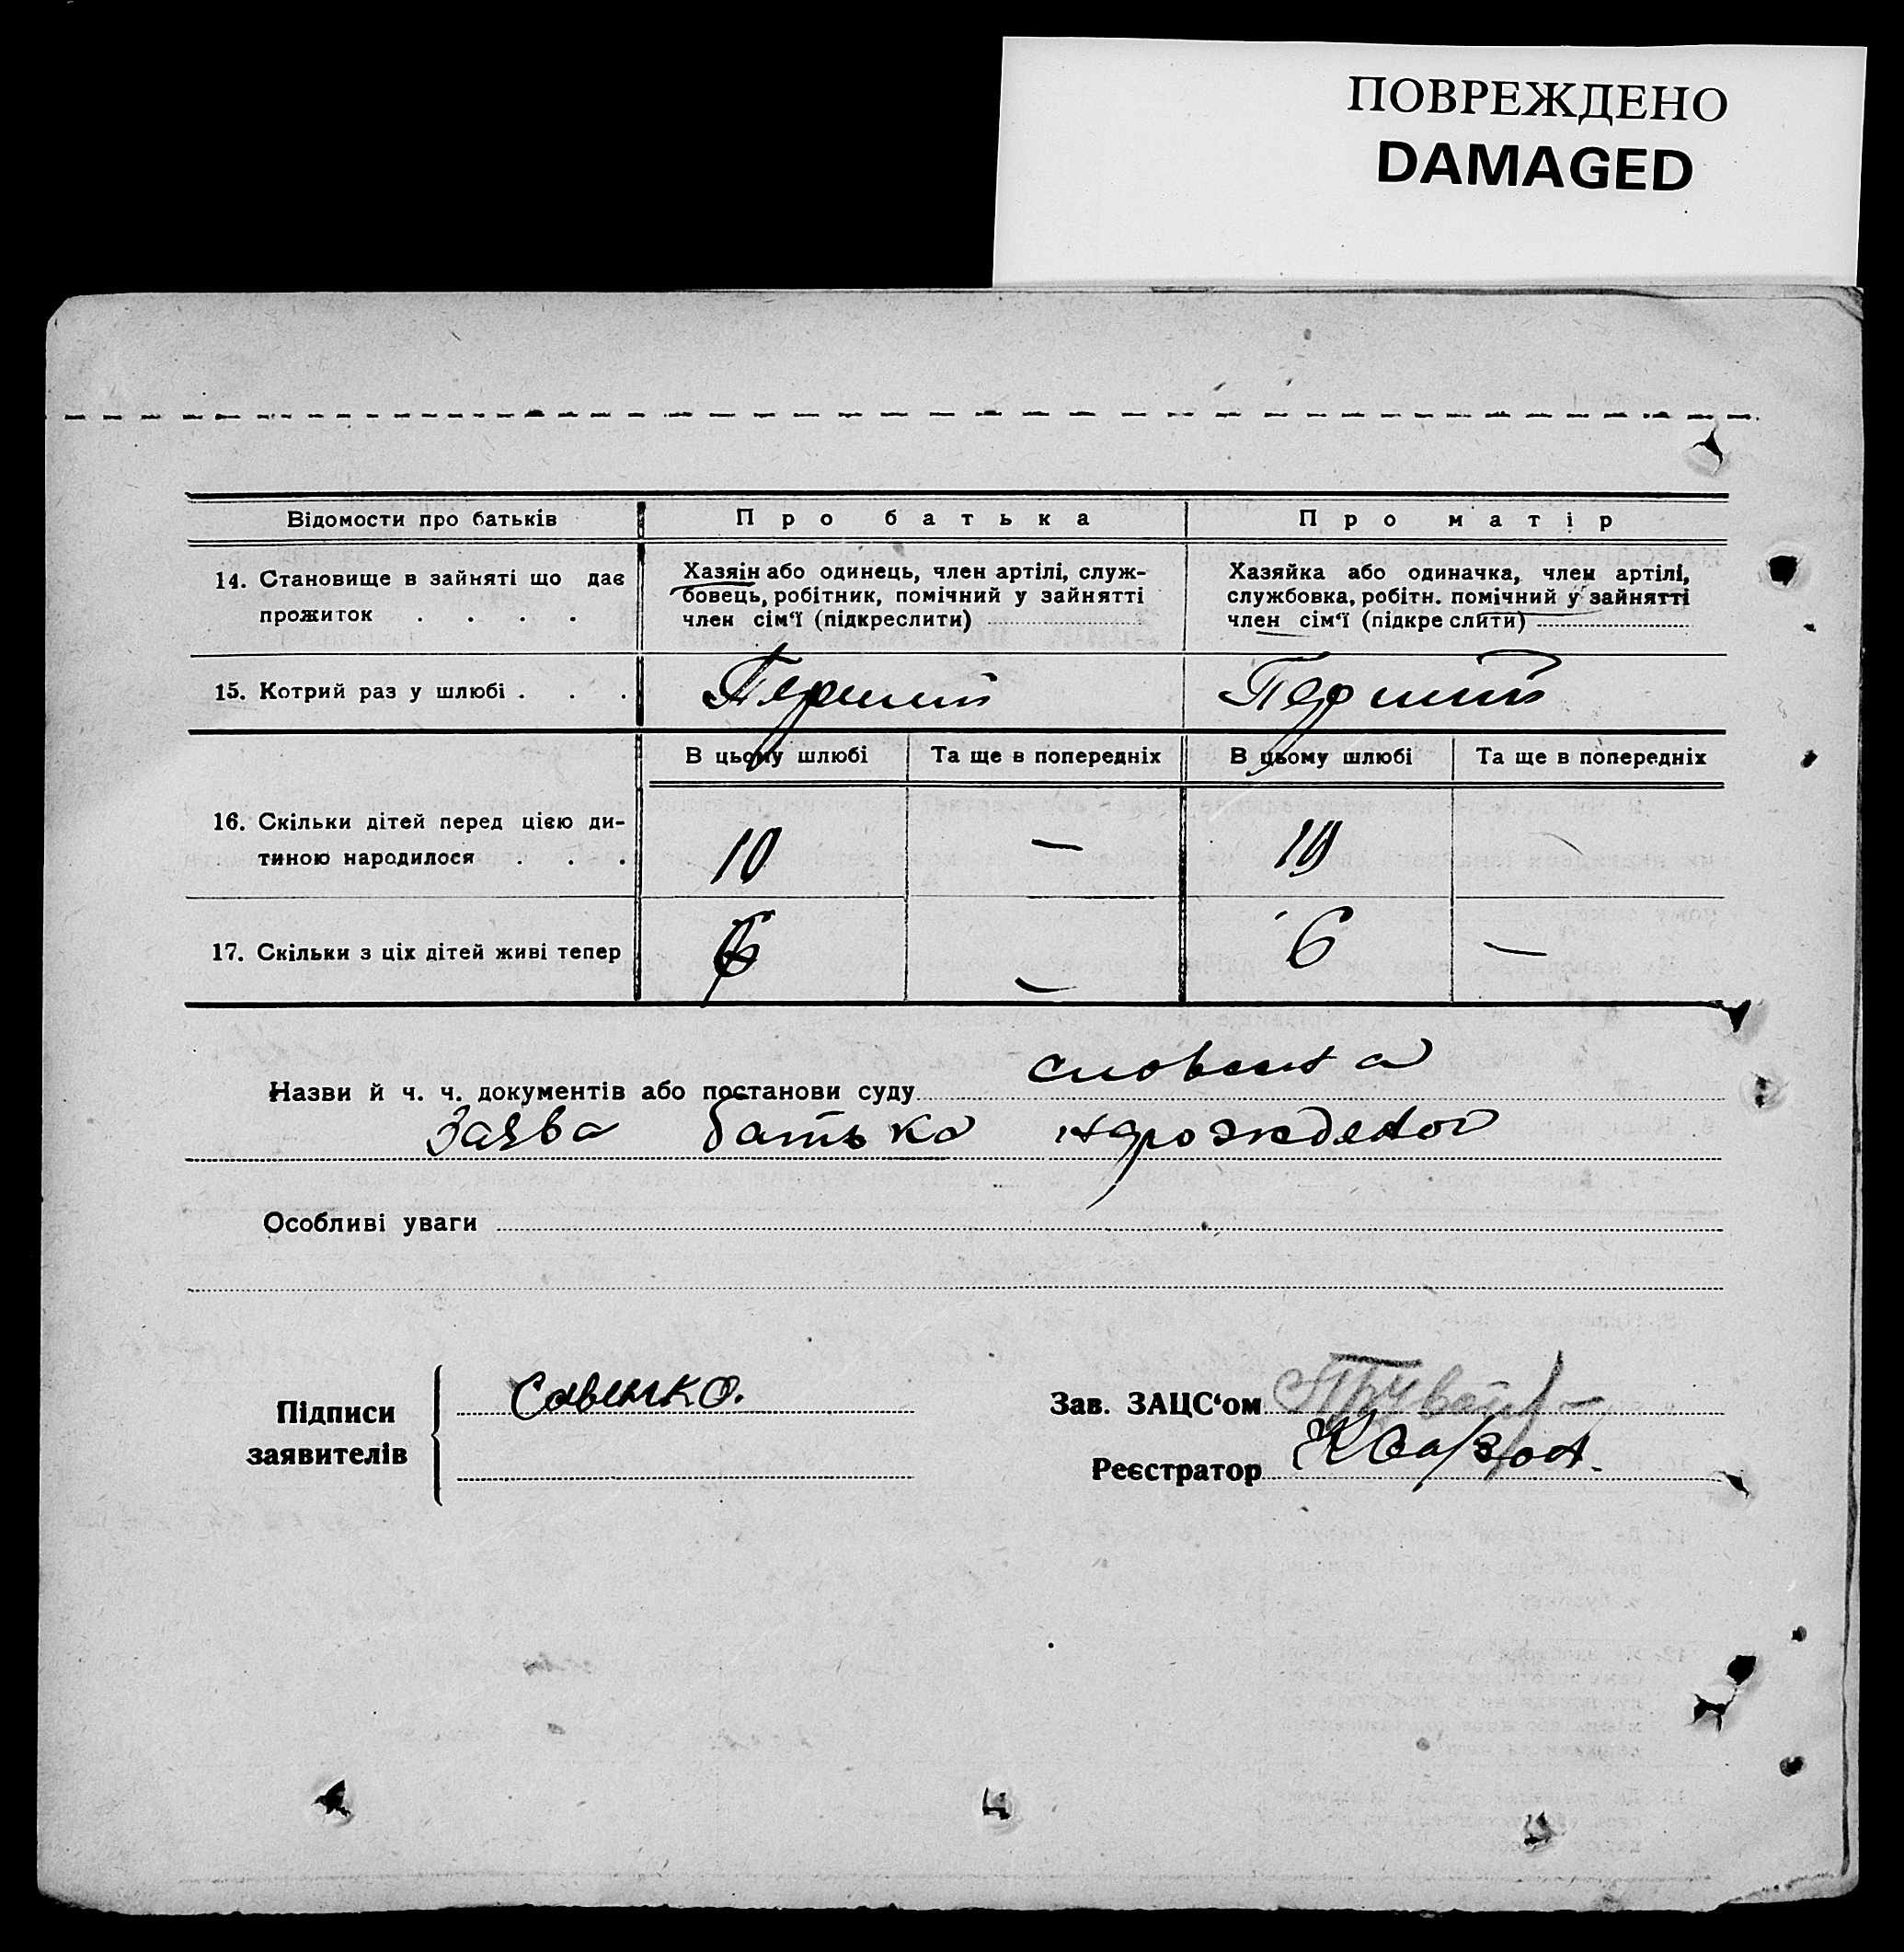 ПОВРЕЖДЕНО
DAMAGED
Відомости про батьків
Про батька
Про матір
14. Становище в зайняті що дає
прожиток . . . .
Хазяін або одинець, член артілі, служ-
бовець, робітник, помічний у зайнятті
член сім'ї (підкреслити)
Хазяйка або одиначка, член артілі,
службовка, робітн. помічний у зайнятті
член сім'ї (підкреслити)
15. Котрий раз у шлюбі . . .
Перший
Перший
В цьому шлюбі
Та ще в попередніх
В цьому шлюбі
Та ще в попередніх
16. Скільки дітей перед цією ди-
тиною народилося . . .
10
—
10
17. Скільки з ціх дітей живі тепер
6
—
6
—
Назви й ч. ч. документів або постанови суду словесна
Заява батька
Особливі уваги
Підписи
заявителів
Савенко.
Зав. ЗАЦС'ом
Реєстратор